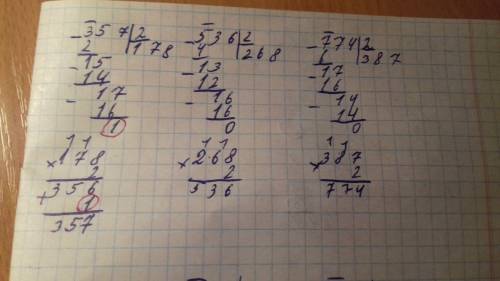 357 | 2
2 | 178
15
14
17
16
1
178
× 2
356
+ 1
357
536 | 2
4 | 268
13
12
16
16
0
268
× 2
536
774 | 2
6 | 387
17
16
14
14
0
387
× 2
774